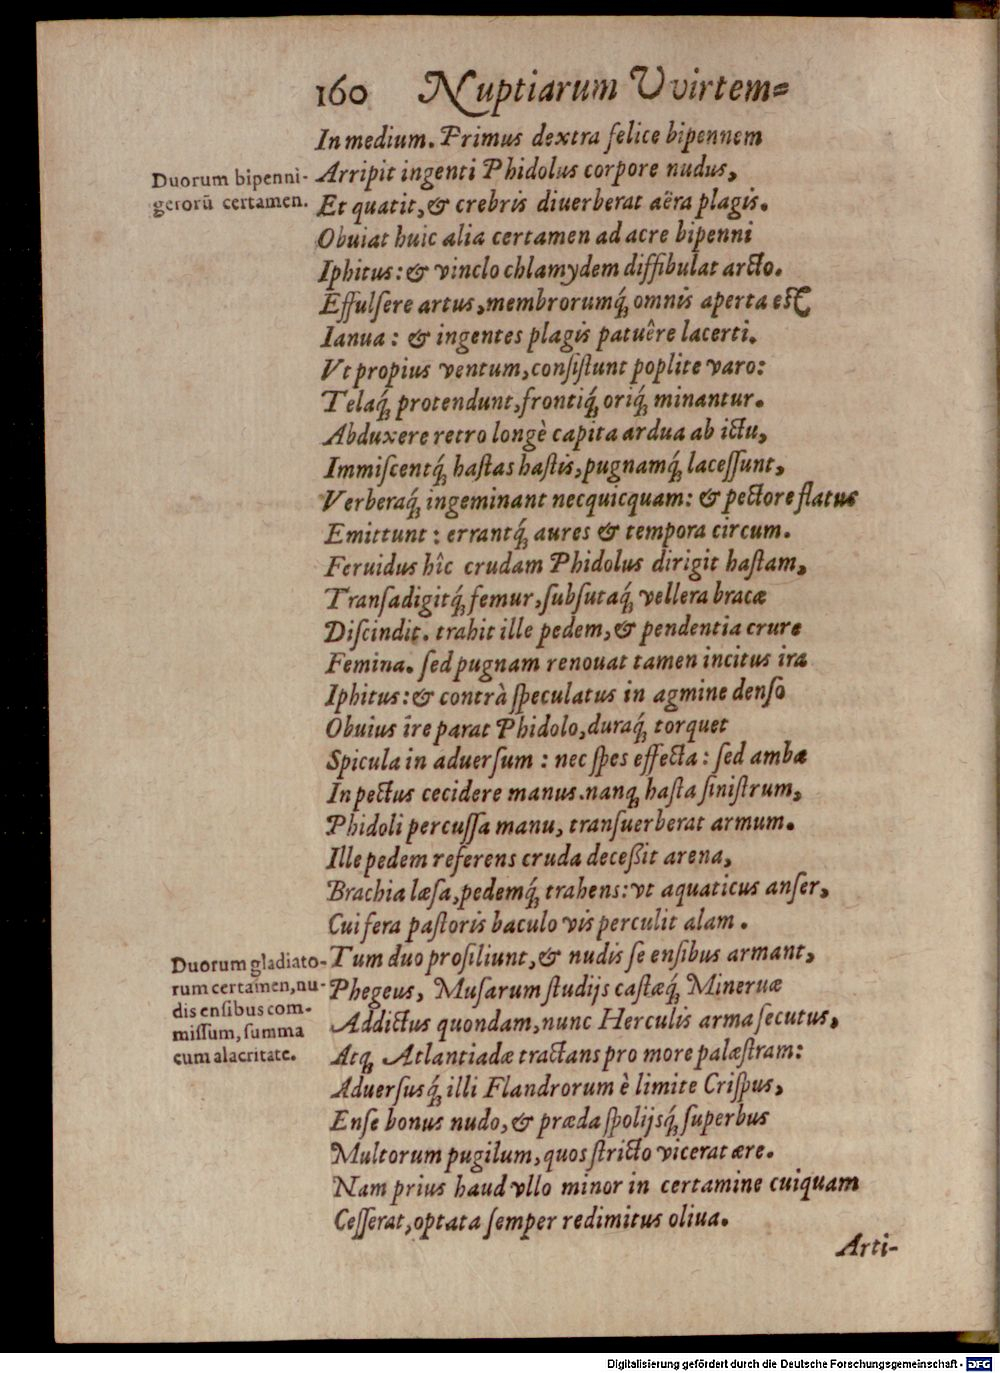 160 Nuptiarum Vvirtem⸗
In medium. Primus dextra felice bipennem
Duorum bipenni-
gerorū certamen.
Arripit ingenti Phidolus corpore nudus,
Et quatit, & crebris diuerberat aëra plagis.
Obuiat huic alia certamen ad acre bipenni
Iphitus: & vinclo chlamydem diffibulat arcto.
Effulsere artus, membrorumq́ꝫ omnis aperta est
Ianua: & ingentes plagis patuêre lacerti.
Vt propius ventum, consistunt poplite varo:
Telaq́ꝫ protendunt, frontiq́ꝫ oriq́ꝫ minantur.
Abduxere retro longè capita ardua ab ictu,
Immiscentq́ꝫ hastas hastis, pugnamq́ꝫ lacessunt,
Verberaq́ꝫ ingeminant necquicquam: & pectore flatus
Emittunt: errantq́ꝫ aures & tempora circum.
Feruidus hîc crudam Phidolus dirigit hastam,
Transadigitq́ꝫ femur, subsutaq́ꝫ vellera bracæ
Discindit. trahit ille pedem, & pendentia crure
Femina. sed pugnam renouat tamen incitus ira
Iphitus: & contrà speculatus in agmine denso
Obuius ire parat Phidolo, duraq́ꝫ torquet
Spicula in aduersum: nec spes effecta: sed ambæ
In pectus cecidere manus. nanqꝫ hasta sinistrum,
Phidoli percussa manu, transuerberat armum.
Ille pedem referens cruda deceßit arena,
Brachia læsa, pedemq́ꝫ trahens: vt aquaticus anser,
Cui fera pastoris baculo vis perculit alam.
Duorum gladiato-
rum certamen, nu-
dis ensibus com-
missum, summa
cum alacritate.
Tum duo prosiliunt, & nudis se ensibus armant,
Phegeus, Musarum studijs castæq́ꝫ Mineruæ
Addictus quondam, nunc Herculis arma secutus,
Atqꝫ Atlantiadæ tractans pro more palæstram:
Aduersusq́ꝫ illi Flandrorum è limite Crispus,
Ense bonus nudo, & præda spolijsq́ꝫ superbus
Multorum pugilum, quos stricto vicerat ære.
Nam prius haud vllo minor in certamine cuiquam
Cesserat, optata semper redimitus oliua.
Arti-
Digitalisierung gefördert durch die Deutsche Forschungsgemeinschaft - DFG